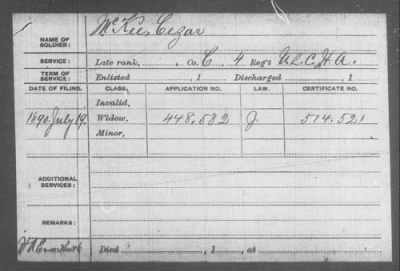 NAME OF SOLDIER: McKee, Cezar
SERVICE: Late rank, Co. C, 4 Reg't U.S.C.H.A.
TERM OF SERVICE: Enlisted , 1 Discharged , 1
DATE OF FILING. CLASS. APPLICATION NO. LAW. CERTIFICATE NO.
Invalid,
1890. July 19. Widow, 448.582 J. 514.521
Minor,
ADDITIONAL SERVICES:
REMARKS:
Died , 1 , at